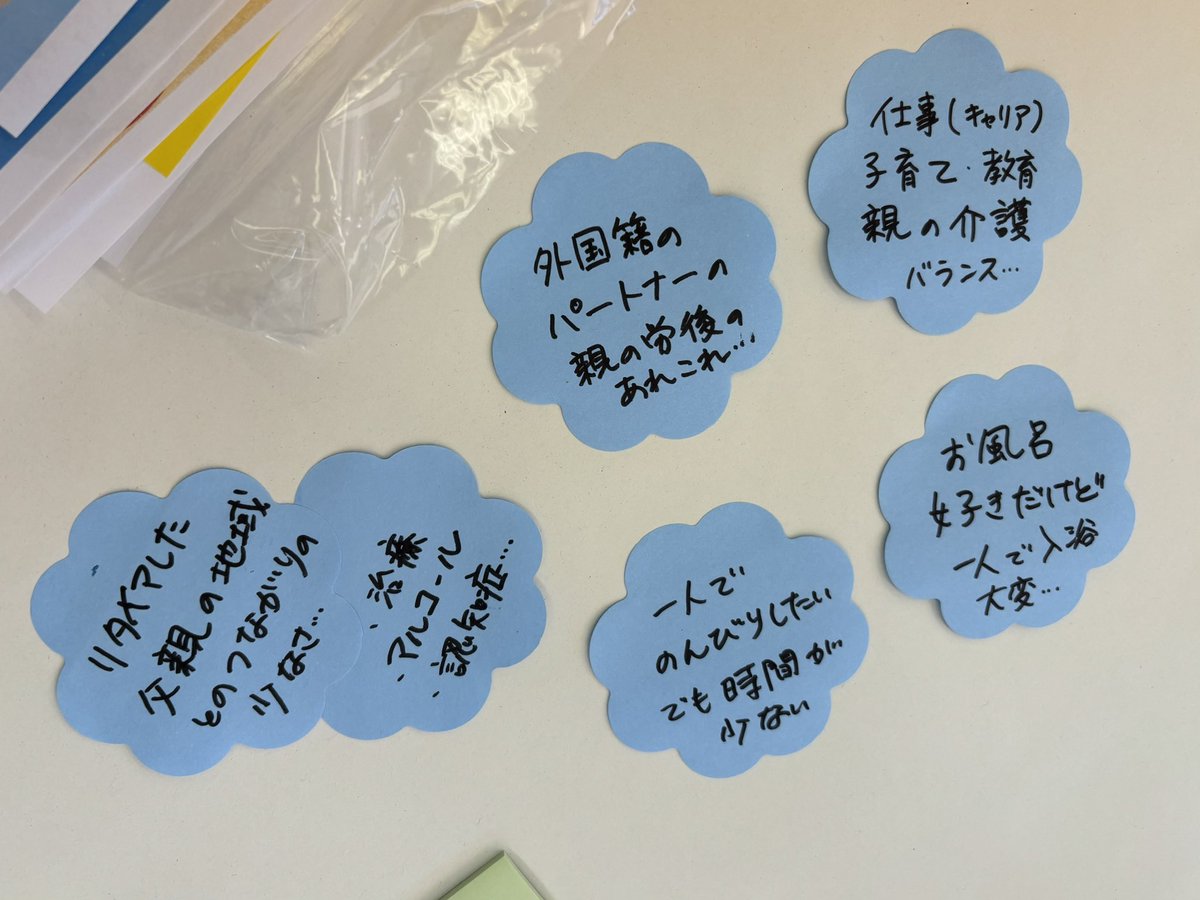 仕事(キャリア)
子育て・教育
親の介護
バランス…
外国籍の
パートナーの
親の労後の
あれこれ…
お風呂
好きだけど
一人で入浴
大変…
一人で
のんびりしたい
でも時間が
少ない
・治療
・アルコール
・認知症…
リタイアした
父親の地域
とのつながりの
少なさ…